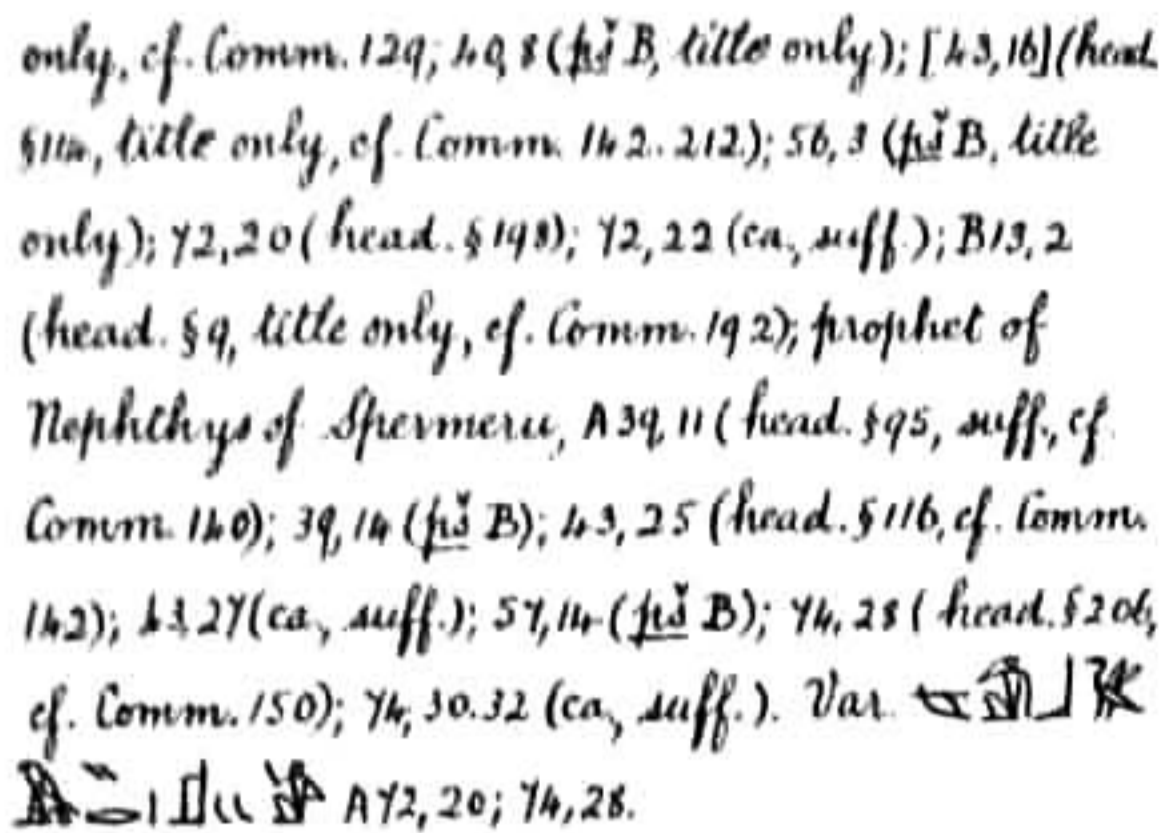 only, cf. Comm. 129; 40,8 (pš B, title only); [43,16] (head.
§114, title only, cf. Comm. 142. 212); 56,3 (pš B, title
only); 72,20 (head. §198); 72,22 (ca., suff.); B13,2
(head. §9, title only, cf. Comm. 192); prophet of
Nephthys of Spermeru, A39,11 (head. §95, suff., cf.
Comm. 140); 39,14 (pš B); 43,25 (head. §116, cf. Comm.
142); 43,27 (ca., suff.); 57,14 (pš B); 74,28 (head. §206,
cf. Comm. 150); 74,30.32 (ca., suff.). Var.
A72,20; 74,28.